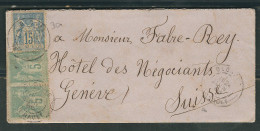 à Monsieur Fabre-Rey.
Hôtel des Négociants
Genève)
Suisse
15
5
5